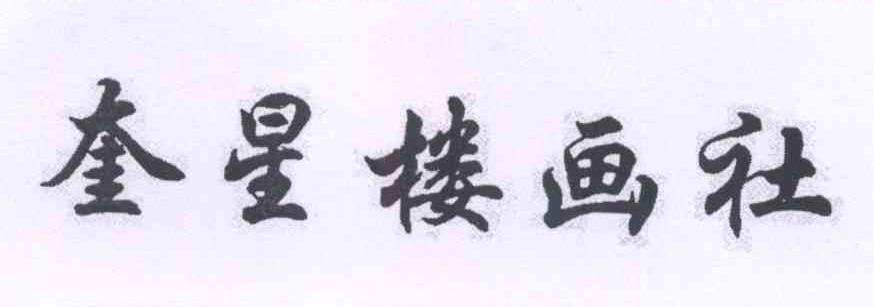 奎星楼画社